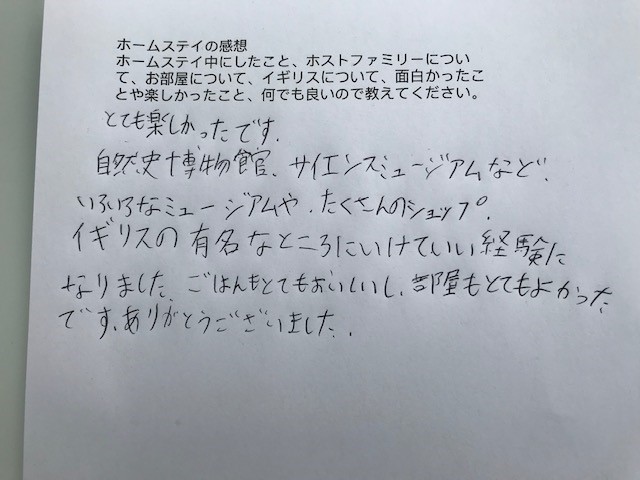 ホームステイの感想
ホームステイ中にしたこと、ホストファミリーについ
て、お部屋について、イギリスについて、面白かったこ
とや楽しかったこと、何でも良いので教えてください。
とても楽しかったです.
自然史博物館、サイエンスミュージアムなど、
いろいろなミュージアムや、たくさんのショップ、
イギリスの有名なところにいけていい経験に
なりました、ごはんもとてもおいしいし、部屋もとてもよかった
です、ありがとうございました.